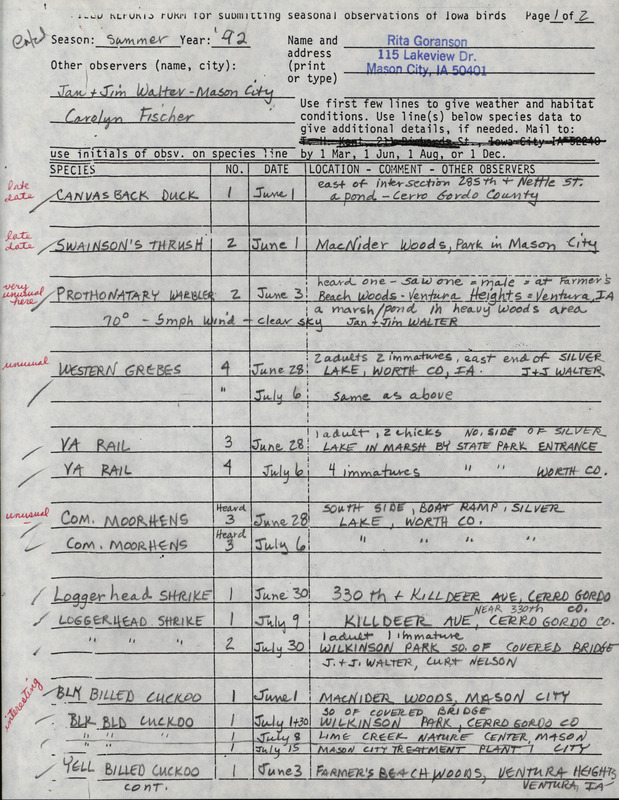 FIELD REPORTS FORM for submitting seasonal observations of Iowa birds Page 1 of 2
Season: Summer Year: '92 Name and address (print or type)
Rita Goranson
115 Lakeview Dr.
Mason City, IA 50401
Other observers (name, city):
Jan + Jim Walter - Mason City
Carolyn Fischer
Use first few lines to give weather and habitat
conditions. Use line(s) below species data to
give additional details, if needed. Mail to:
use initials of obsv. on species line by 1 Mar, 1 Jun, 1 Aug, or 1 Dec.
SPECIES NO. DATE LOCATION - COMMENT - OTHER OBSERVERS
late date
east of intersection 285th + Nettle St.
CANVASBACK DUCK 1 June 1 a pond - Cerro Gordo County
late date
SWAINSON'S THRUSH 2 June 1 MacNider Woods, Park in Mason City
very unusual here
heard one - saw one = male = at Farmer's
PROTHONATARY WARBLER 2 June 3 Beach Woods - Ventura Heights = Ventura, IA
a marsh/pond in heavy woods area
70° - 5mph wind - clear sky Jan + Jim WALTER
unusual
2 adults 2 immatures, east end of SILVER
WESTERN GREBES 4 June 28 LAKE, WORTH CO, IA. J+J WALTER
" July 6 same as above
1 adult, 2 chicks NO. SIDE OF SILVER
VA RAIL 3 June 28 LAKE IN MARSH BY STATE PARK ENTRANCE
VA RAIL 4 July 6 4 immatures " " WORTH CO.
unusual
SOUTH SIDE, BOAT RAMP, SILVER
COM. MOORHENS Heard 3 June 28 LAKE, WORTH CO.
COM. MOORHENS Heard 3 July 6 " " " "
Loggerhead SHRIKE 1 June 30 330th + KILLDEER AVE, CERRO GORDO CO.
NEAR 330th
LOGGERHEAD SHRIKE 1 July 9 KILLDEER AVE, CERRO GORDO CO.
1 adult 1 immature
" " " 2 July 30 WILKINSON PARK SO. OF COVERED BRIDGE
J. + J. WALTER, CURT NELSON
interesting
BLK BILLED CUCKOO 1 June 1 MACNIDER WOODS, MASON CITY
SO OF COVERED BRIDGE
BLK BLD CUCKOO 1 July 1+30 WILKINSON PARK, CERRO GORDO CO
" " 1 July 8 LIME CREEK NATURE CENTER, MASON CITY
" " 1 July 15 MASON CITY TREATMENT PLANT
YELL BILLED CUCKOO 1 June 3 FARMER'S BEACH WOODS, VENTURA HEIGHTS
VENTURA, IA
cont.